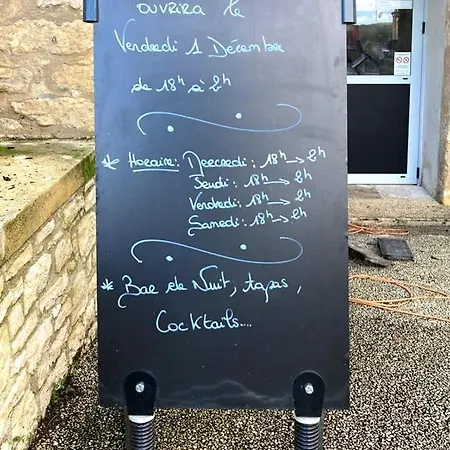 ouvrira le
Vendredi 1 Décembre
de 18h à 2h
* Horaire: Mercredi: 18h → 2h
Jeudi: 18h → 2h
Vendredi: 18h → 2h
Samedi: 18h → 2h
* Bar de Nuit, tapas,
Cocktails....